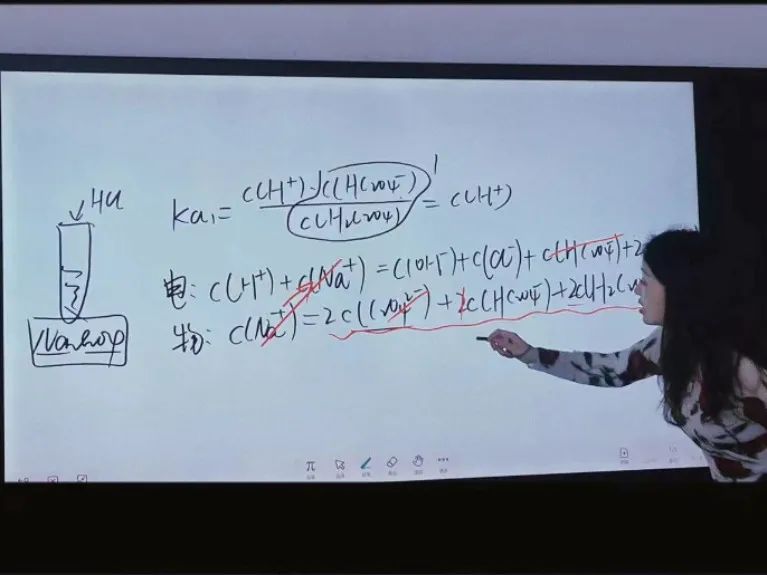 HCl
Ka₁ = c(H⁺)·c(HC₂O₄⁻) / c(H₂C₂O₄) = c(H⁺)
1
电: c(H⁺) + c(Na⁺) = c(OH⁻) + c(Cl⁻) + c(HC₂O₄⁻) + 2
物: c(Na⁺) = 2c(C₂O₄²⁻) + 2c(HC₂O₄⁻) + 2c(H₂C₂O₄
π